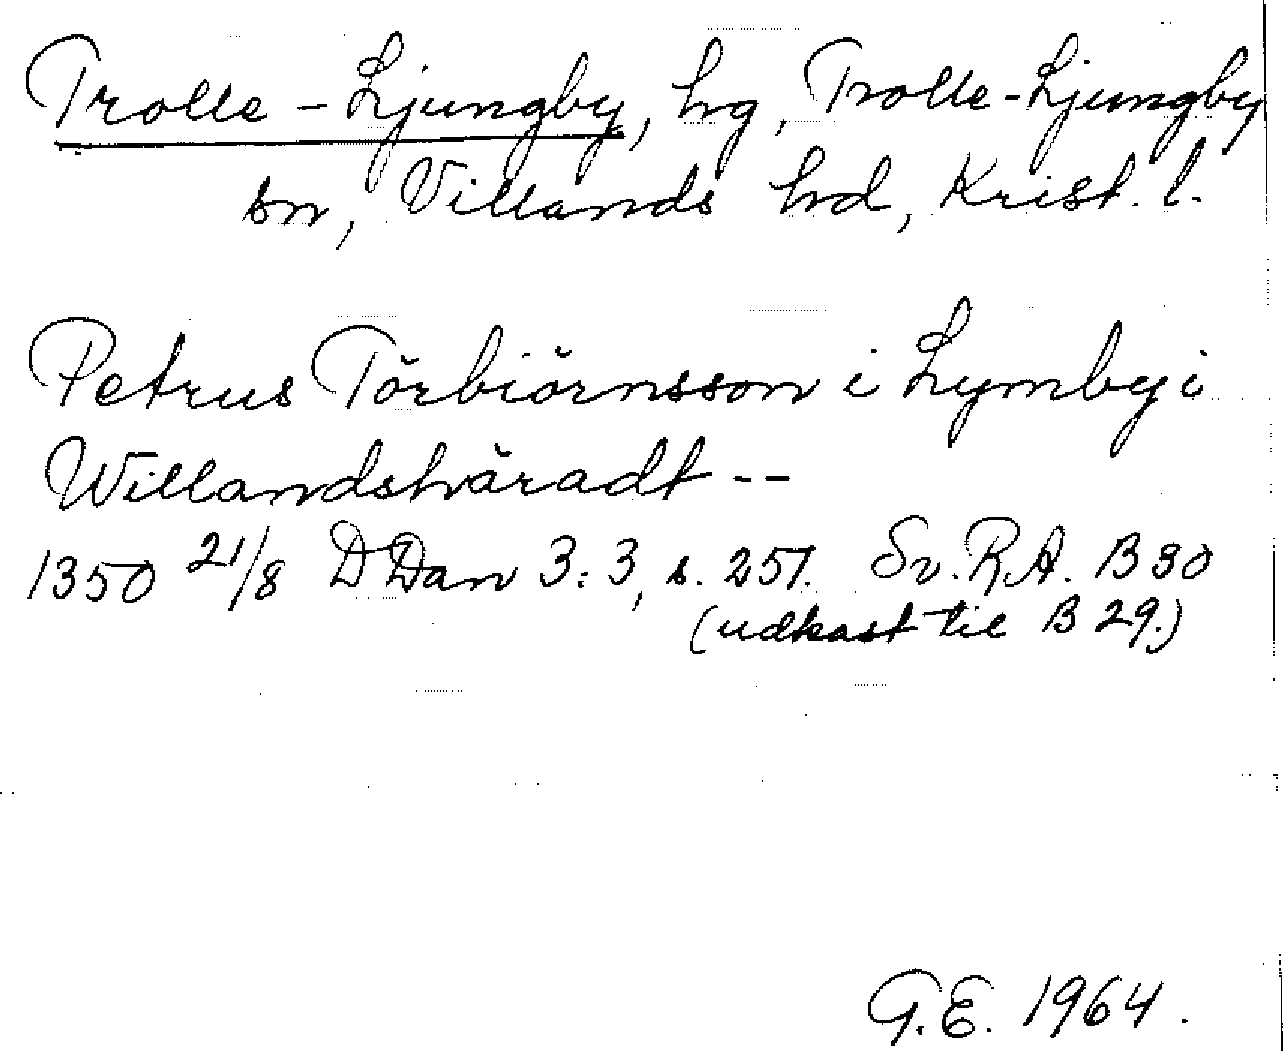 Trolle-Ljungby, hg, Trolle-Ljungby
sn, Villands hd, Krist. l.
Petrus Törbiörnsson i Lymby i
Willandshäradt --
1350 21/8 DDan 3:3, s. 251. Sv. RA. B 30
(udkast til B 29.)
G.E. 1964.